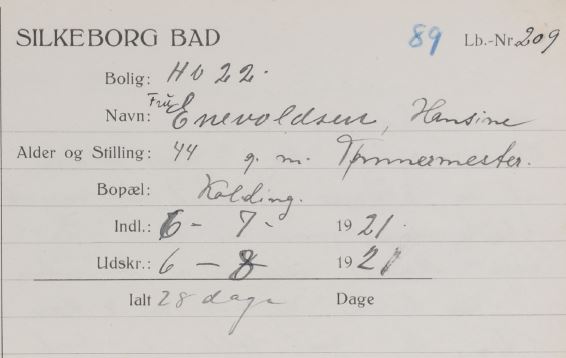 SILKEBORG BAD 89 Lb.-Nr. 209
Bolig: H V 22.
Navn: Fru Enevoldsen, Hansine
Alder og Stilling: 44 g. m. Tømmermester.
Bopæl: Kolding.
Indl.: 6 - 7 - 1921.
Udskr.: 6 - 8 1921
Ialt 28 dage Dage